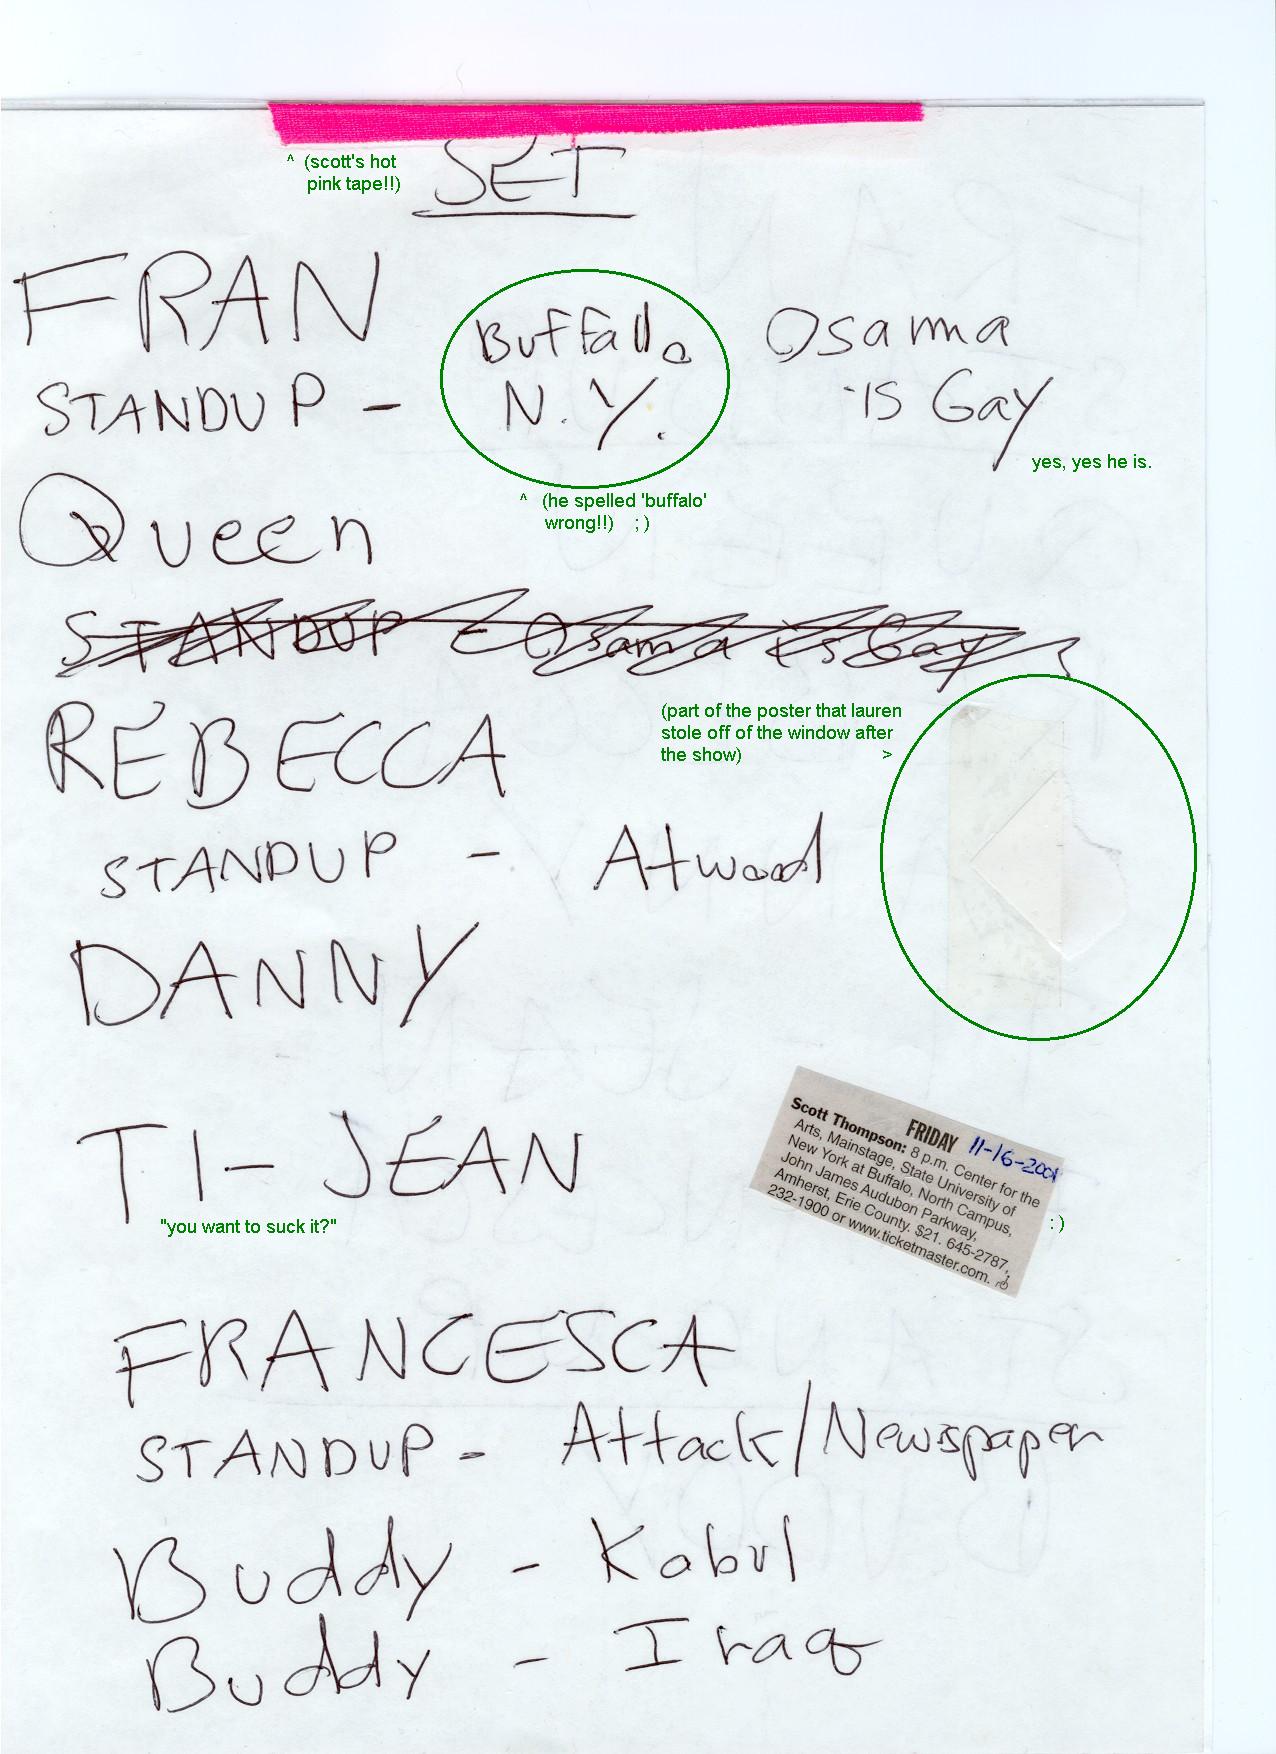 SET
^ (scott's hot
pink tape!!)
FRAN
STANDUP - Buffallo
N.Y.
Osama
is Gay
yes, yes he is.
^ (he spelled 'buffalo'
wrong!!) ; )
Queen
STANDUP - Osama is Gay
(part of the poster that lauren
stole off of the window after
the show) >
REBECCA
STANDUP - Atwood
DANNY
TI-JEAN
"you want to suck it?"
FRIDAY 11-16-2001
Scott Thompson: 8 p.m. Center for the
Arts, Mainstage, State University of
New York at Buffalo, North Campus,
John James Audubon Parkway,
Amherst, Erie County. $21. 645-2787,
232-1900 or www.ticketmaster.com.
: )
FRANCESCA
STANDUP - Attack/Newspaper
Buddy - Kabul
Buddy - Iraq